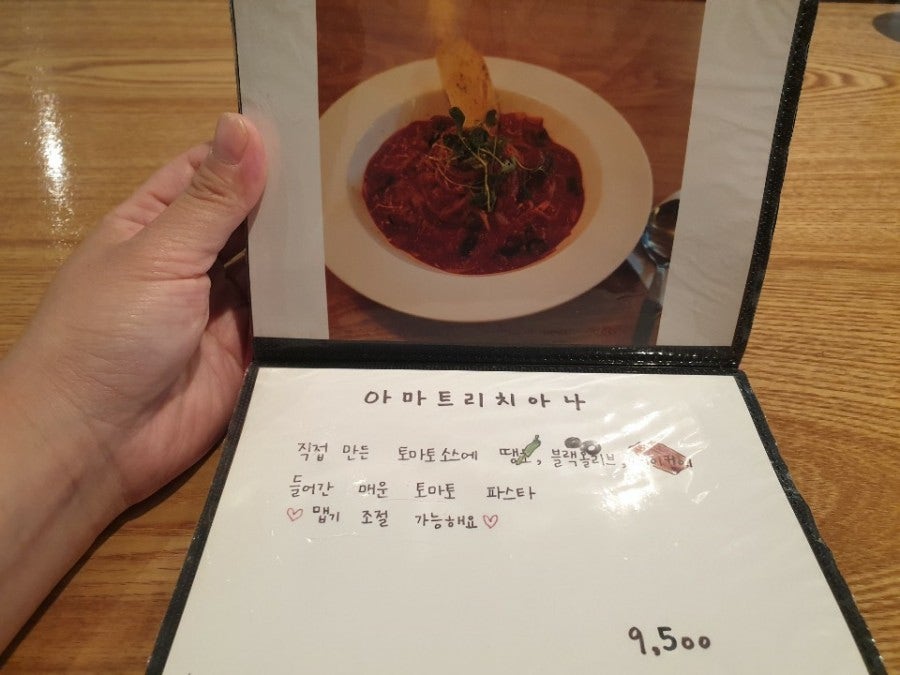 아마트리치아나
직접 만든 토마토소스에 땡초, 블랙올리브,
들어간 매운 토마토 파스타
♡ 맵기 조절 가능해요 ♡
9,500